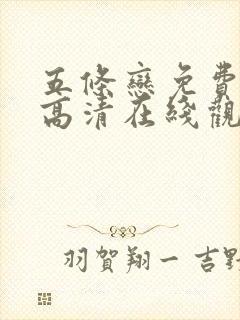 五條戀免費
高清在綫觀
羽賀翔一 吉野